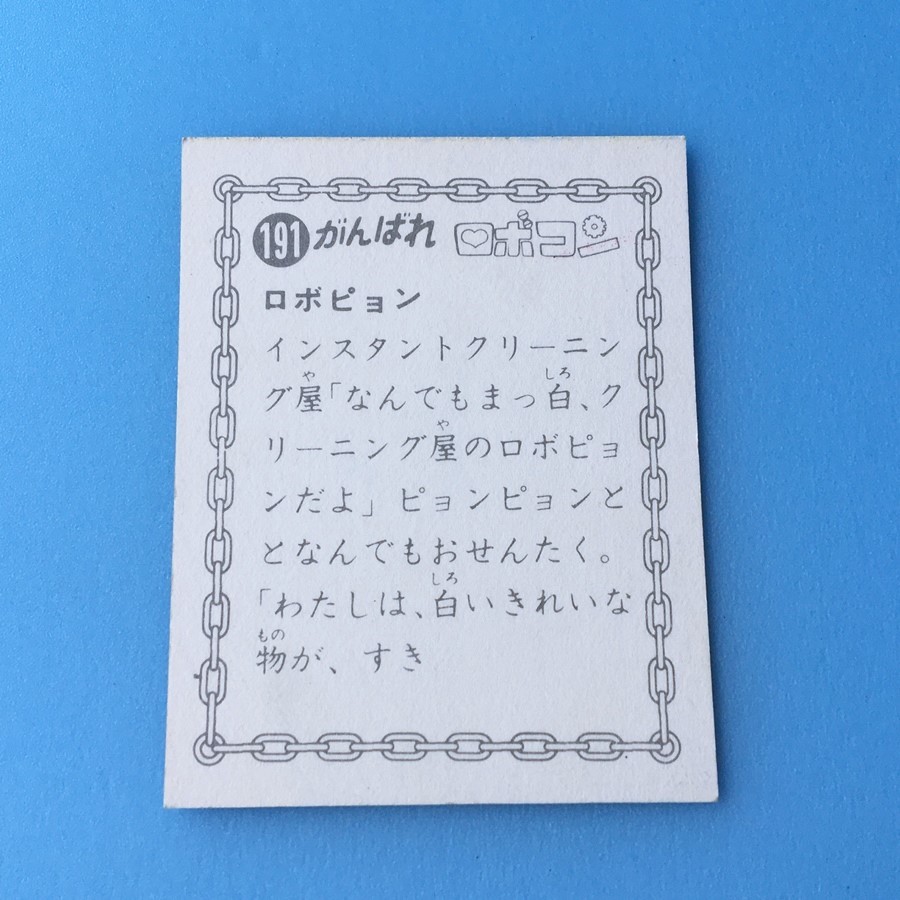 191 がんばれ ロボコン
ロボピョン
インスタントクリーニン
グ屋「なんでもまっ白、ク
リーニング屋のロボピョ
ンだよ」ピョンピョンと
となんでもおせんたく。
「わたしは、白いきれいな
物が、すき